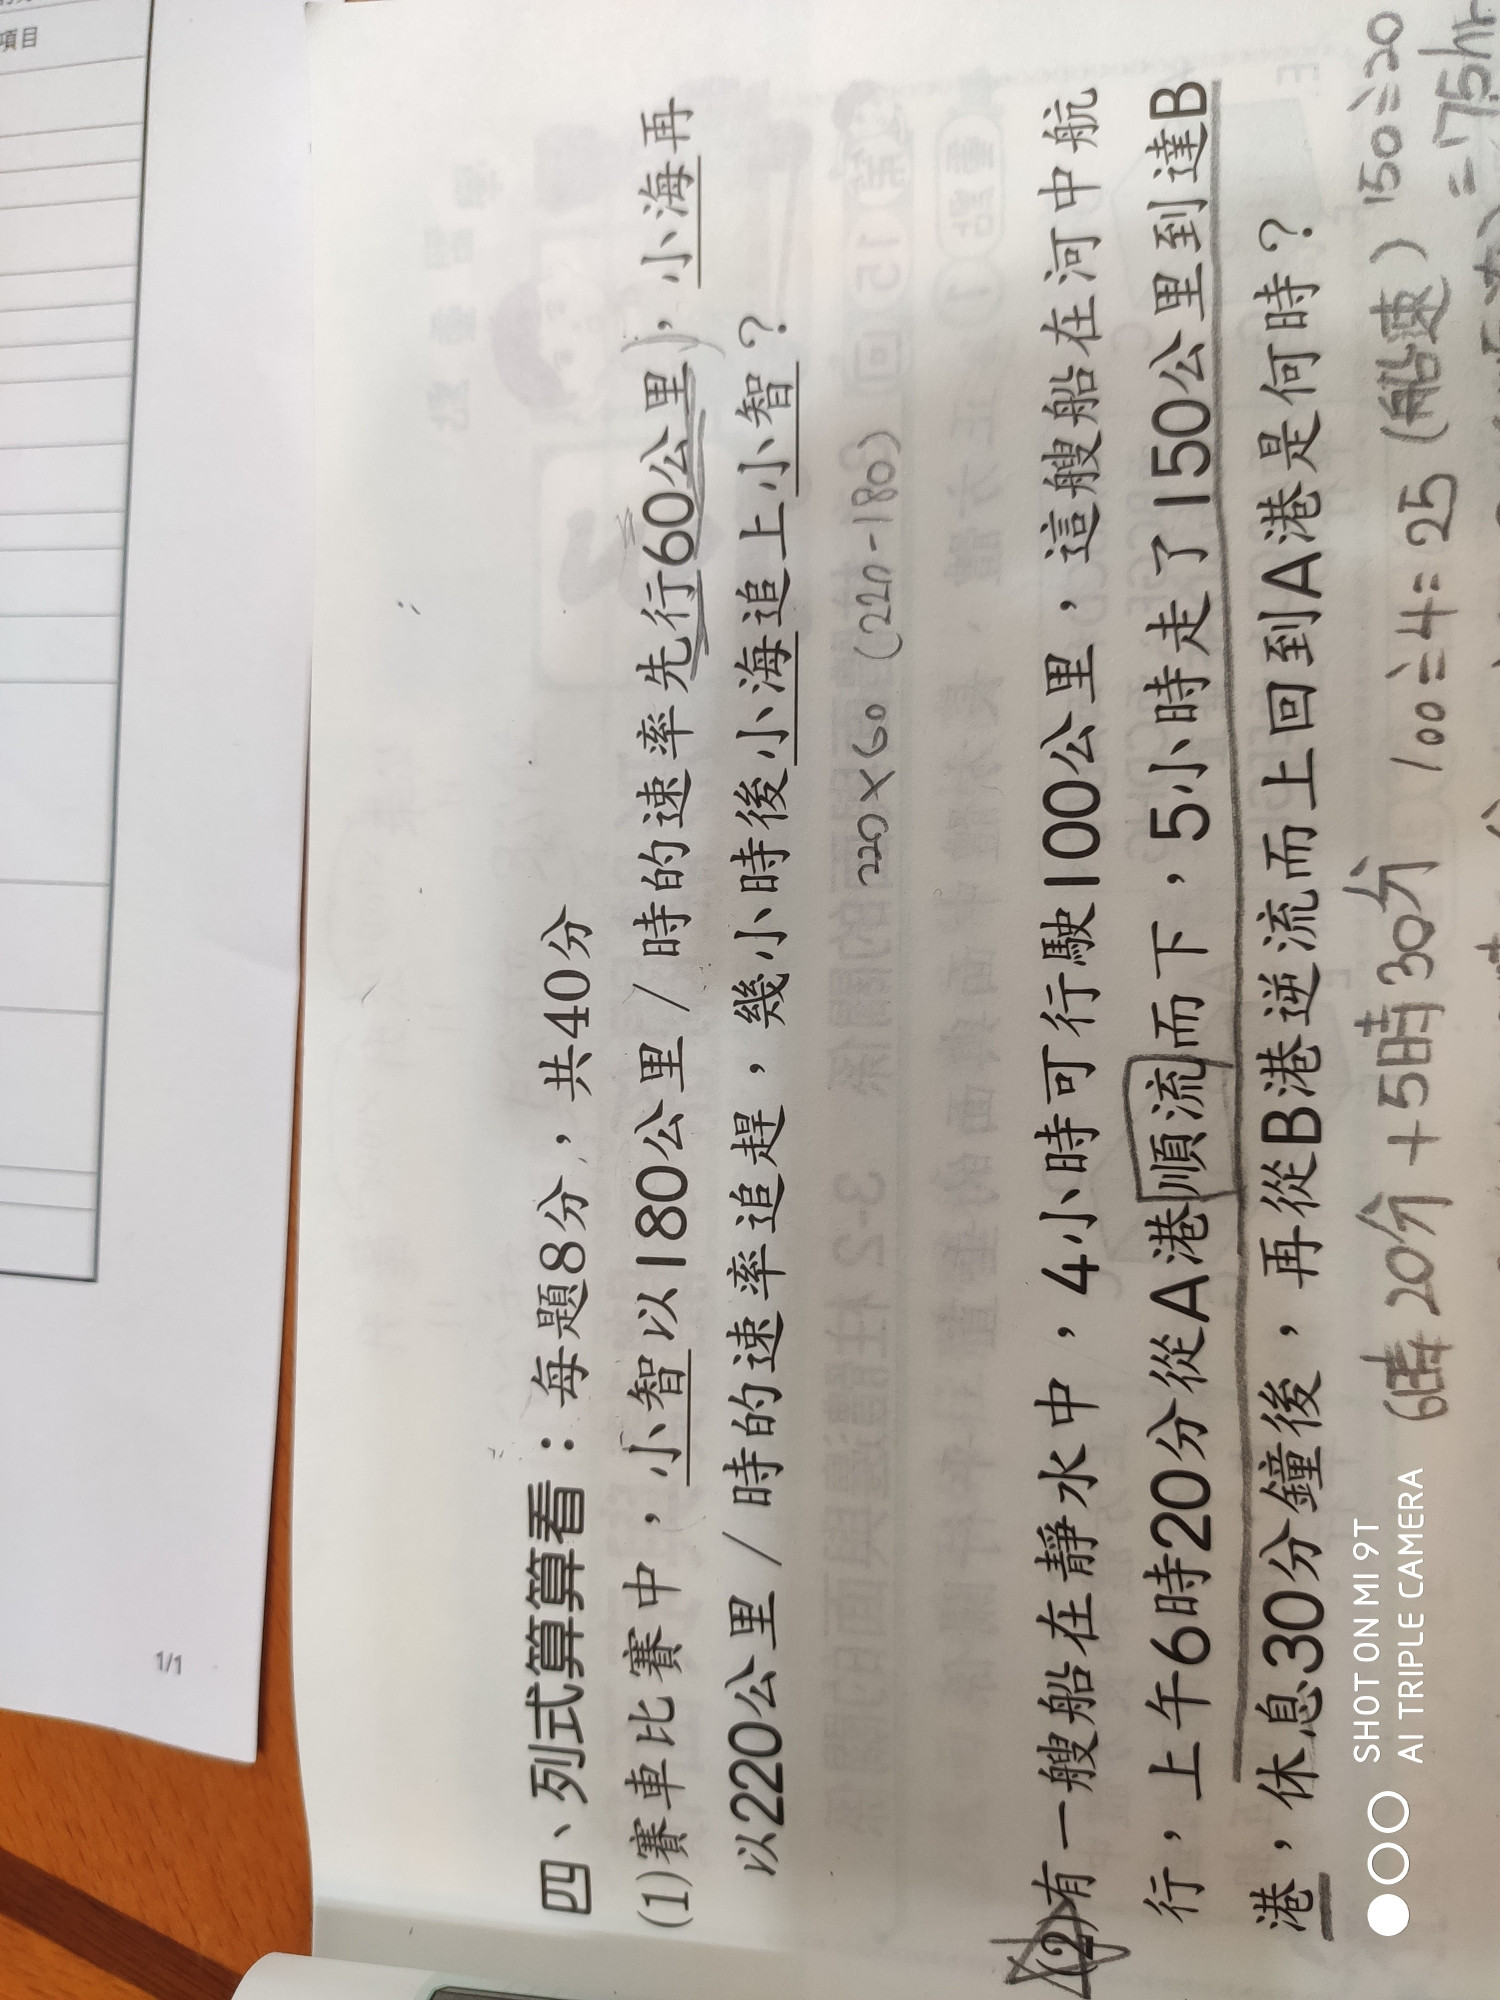 項目
1/1
四、列式算算看：每題8分，共40分
(1)賽車比賽中，小智以180公里/時的速率先行60公里，小海再
以220公里/時的速率追趕，幾小時後小海追上小智？
220×60 (220-180)
(2)有一艘船在靜水中，4小時可行駛100公里，這艘船在河中航
行，上午6時20分從A港順流而下，5小時走了150公里到達B
港，休息30分鐘後，再從B港逆流而上回到A港是何時？
6時20分+5時30分 100÷4=25 (船速) 150÷20
=7.5hr
SHOT ON MI 9T
AI TRIPLE CAMERA